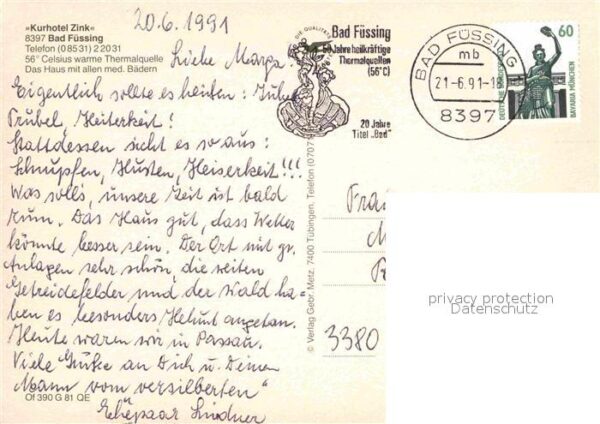 »Kurhotel Zink«
8397 Bad Füssing
Telefon (0 85 31) 2 20 31
56° Celsius warme Thermalquelle
Das Haus mit allen med. Bädern
20.6.1991
Liebe Marga!
Eigentlich sollte es heißen: Jubel
Trubel, Heiterkeit!
Stattdessen sieht es so aus:
Schnupfen, Husten, Heiserkeit!!!
Was solls, unsere Zeit ist bald
rum. Das Haus gut, dass Wetter
könnte besser sein. Der Ort mit gr.
Anlagen sehr schön, die weiten
Getreidefelder und der Wald ha-
ben es besonders Helmut angetan.
Heute waren wir in Passau.
Viele Grüße an Dich u. Deinen
Mann vom „versilberten“
Ehepaar Lindner
Of 390 G 81 QE
© Verlag Gebr. Metz, 7400 Tübingen, Telefon (0707
Bad Füssing
50 Jahre heilkräftige
Thermalquellen
(56°C)
20 Jahre
Titel „Bad“
BAD FÜSSING
mb
21.-6.91-1
8397
60
DEUTSCHE BUNDESPOST
BAVARIA MÜNCHEN
Frau
3380
privacy protection
Datenschutz